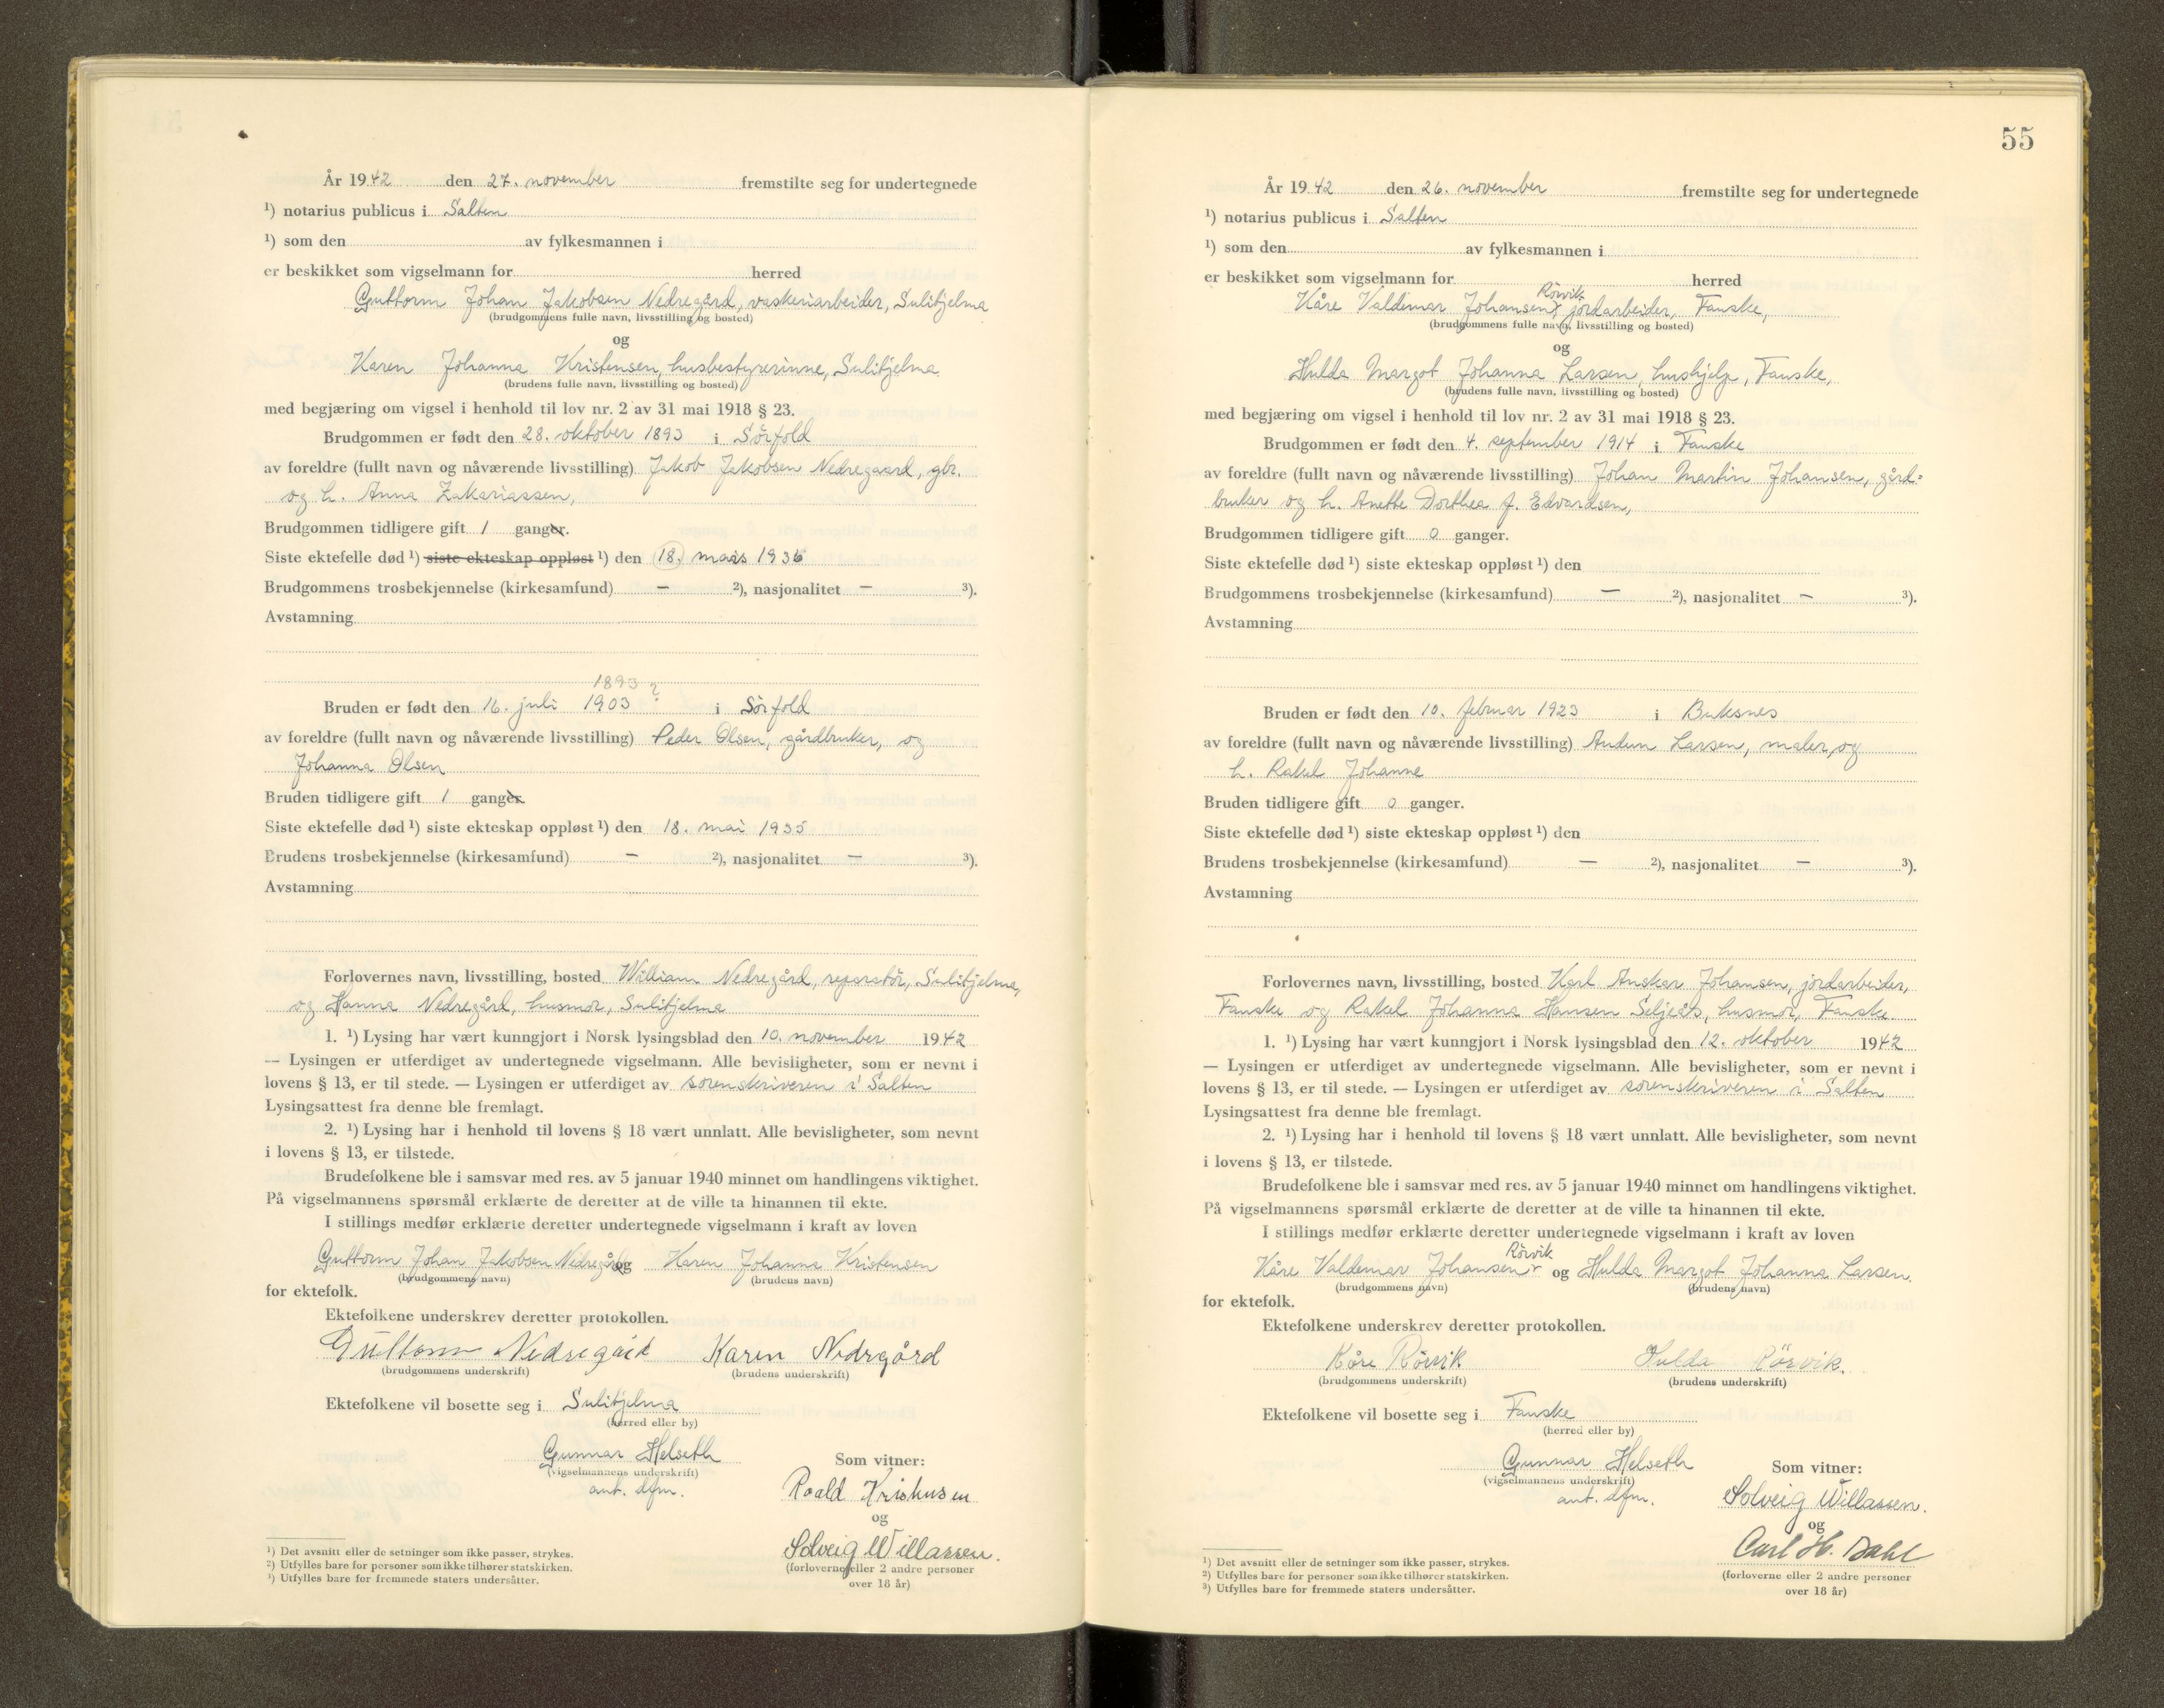 År 1942 den 27. november fremstilte seg for undertegnede
¹) notarius publicus i Salten
¹) som den av fylkesmannen i
er beskikket som vigselmann for herred
Guttorm Johan Jakobsen Nedregård, vaskeriarbeider, Sulitjelma
(brudgommens fulle navn, livsstilling og bosted)
og
Karen Johanna Kristensen, husbestyrerinne, Sulitjelma
(brudens fulle navn, livsstilling og bosted)
med begjæring om vigsel i henhold til lov nr. 2 av 31 mai 1918 § 23.
Brudgommen er født den 28. oktober 1893 i Sörfold
av foreldre (fullt navn og nåværende livsstilling) Jakob Jakobsen Nedregaard, gbr.
og h. Anna Zakariassen,
Brudgommen tidligere gift 1 ganger.
Siste ektefelle død ¹) siste ekteskap oppløst ¹) den 18. mars 1936
Brudgommens trosbekjennelse (kirkesamfund) — ²), nasjonalitet — ³).
Avstamning
1893 ?
Bruden er født den 16. juli 1903 i Sörfold
av foreldre (fullt navn og nåværende livsstilling) Peder Olsen, gårdbruker, og
Johanna Olsen
Bruden tidligere gift 1 ganger.
Siste ektefelle død ¹) siste ekteskap oppløst ¹) den 18. mai 1935
Brudens trosbekjennelse (kirkesamfund) — ²), nasjonalitet — ³).
Avstamning
Forlovernes navn, livsstilling, bosted William Nedregård, reparatör, Sulitjelma,
og Hanna Nedregård, husmor, Sulitjelma
1. ¹) Lysing har vært kunngjort i Norsk lysingsblad den 10. november 1942
— Lysingen er utferdiget av undertegnede vigselmann. Alle bevisligheter, som er nevnt i
lovens § 13, er til stede. — Lysingen er utferdiget av sorenskriveren i Salten
Lysingsattest fra denne ble fremlagt.
2. ¹) Lysing har i henhold til lovens § 18 vært unnlatt. Alle bevisligheter, som nevnt
i lovens § 13, er tilstede.
Brudefolkene ble i samsvar med res. av 5 januar 1940 minnet om handlingens viktighet.
På vigselmannens spørsmål erklærte de deretter at de ville ta hinannen til ekte.
I stillings medfør erklærte deretter undertegnede vigselmann i kraft av loven
Guttorm Johan Jakobsen Nedregård og Karen Johanna Kristensen
(brudgommens navn) (brudens navn)
for ektefolk.
Ektefolkene underskrev deretter protokollen.
Guttorm Nedregård Karen Nedrgård
(brudgommens underskrift) (brudens underskrift)
Ektefolkene vil bosette seg i Sulitjelma
(herred eller by)
Gunnar Helseth
(vigselmannens underskrift)
aut. dfm.
Som vitner:
Roald Kristensen
og
Solveig Willassen.
(forloverne eller 2 andre personer
over 18 år)
¹) Det avsnitt eller de setninger som ikke passer, strykes.
²) Utfylles bare for personer som ikke tilhører statskirken.
³) Utfylles bare for fremmede staters undersåtter.
55
År 1942 den 26. november fremstilte seg for undertegnede
¹) notarius publicus i Salten
¹) som den av fylkesmannen i
er beskikket som vigselmann for herred
Rörvik
Kåre Valdemar Johansen, jordarbeider, Fauske,
(brudgommens fulle navn, livsstilling og bosted)
og
Hulda Margot Johanna Larsen, hushjelp, Fauske,
(brudens fulle navn, livsstilling og bosted)
med begjæring om vigsel i henhold til lov nr. 2 av 31 mai 1918 § 23.
Brudgommen er født den 4. september 1914 i Fauske
av foreldre (fullt navn og nåværende livsstilling) Johan Martin Johansen, gård=
bruker og h. Anette Dorthea f. Edvardsen,
Brudgommen tidligere gift 0 ganger.
Siste ektefelle død ¹) siste ekteskap oppløst ¹) den
Brudgommens trosbekjennelse (kirkesamfund) — ²), nasjonalitet — ³).
Avstamning
Bruden er født den 10. februar 1923 i Buksnes
av foreldre (fullt navn og nåværende livsstilling) Audun Larsen, maler, og
h. Rakel Johanne
Bruden tidligere gift 0 ganger.
Siste ektefelle død ¹) siste ekteskap oppløst ¹) den
Brudens trosbekjennelse (kirkesamfund) — ²), nasjonalitet — ³).
Avstamning
Forlovernes navn, livsstilling, bosted Karl Anskar Johansen, jordarbeider,
Fauske og Rakel Johanna Hansen Seljeås, husmor, Fauske.
1. ¹) Lysing har vært kunngjort i Norsk lysingsblad den 12. oktober 1942
— Lysingen er utferdiget av undertegnede vigselmann. Alle bevisligheter, som er nevnt i
lovens § 13, er til stede. — Lysingen er utferdiget av sorenskriveren i Salten
Lysingsattest fra denne ble fremlagt.
2. ¹) Lysing har i henhold til lovens § 18 vært unnlatt. Alle bevisligheter, som nevnt
i lovens § 13, er tilstede.
Brudefolkene ble i samsvar med res. av 5 januar 1940 minnet om handlingens viktighet.
På vigselmannens spørsmål erklærte de deretter at de ville ta hinannen til ekte.
I stillings medfør erklærte deretter undertegnede vigselmann i kraft av loven
Rörvik
Kåre Valdemar Johansen og Hulda Margot Johanna Larsen.
(brudgommens navn) (brudens navn)
for ektefolk.
Ektefolkene underskrev deretter protokollen.
Kåre Rörvik Hulda Rörvik.
(brudgommens underskrift) (brudens underskrift)
Ektefolkene vil bosette seg i Fauske
(herred eller by)
Gunnar Helseth
(vigselmannens underskrift)
aut. dfm.
Som vitner:
Solveig Willassen.
og
Carl H. Dahl
(forloverne eller 2 andre personer
over 18 år)
¹) Det avsnitt eller de setninger som ikke passer, strykes.
²) Utfylles bare for personer som ikke tilhører statskirken.
³) Utfylles bare for fremmede staters undersåtter.